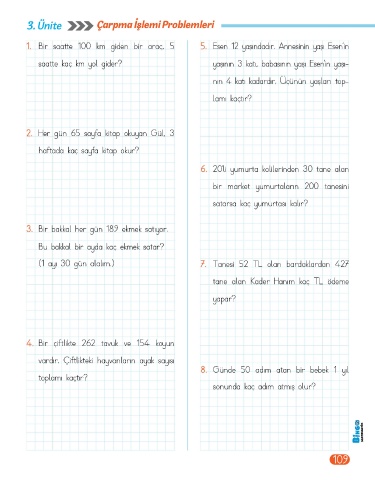 3. Ünite
Çarpma İşlemi Problemleri
1. Bir saatte 100 km giden bir araç, 5
saatte kaç km yol gider?
2. Her gün 65 sayfa kitap okuyan Gül, 3
haftada kaç sayfa kitap okur?
3. Bir bakkal her gün 189 ekmek satıyor.
Bu bakkal bir ayda kaç ekmek satar?
(1 ayı 30 gün alalım.)
4. Bir çiftlikte 262 tavuk ve 154 koyun
vardır. Çiftlikteki hayvanların ayak sayısı
toplamı kaçtır?
5. Esen 12 yaşındadır. Annesinin yaşı Esen'in
yaşının 3 katı, babasının yaşı Esen'in yaşı-
nın 4 katı kadardır. Üçünün yaşları top-
lamı kaçtır?
6. 20'li yumurta kolilerinden 30 tane alan
bir market yumurtaların 200 tanesini
satarsa kaç yumurtası kalır?
7. Tanesi 52 TL olan bardaklardan 427
tane alan Kader Hanım kaç TL ödeme
yapar?
8. Günde 50 adım atan bir bebek 1 yıl
sonunda kaç adım atmış olur?
109